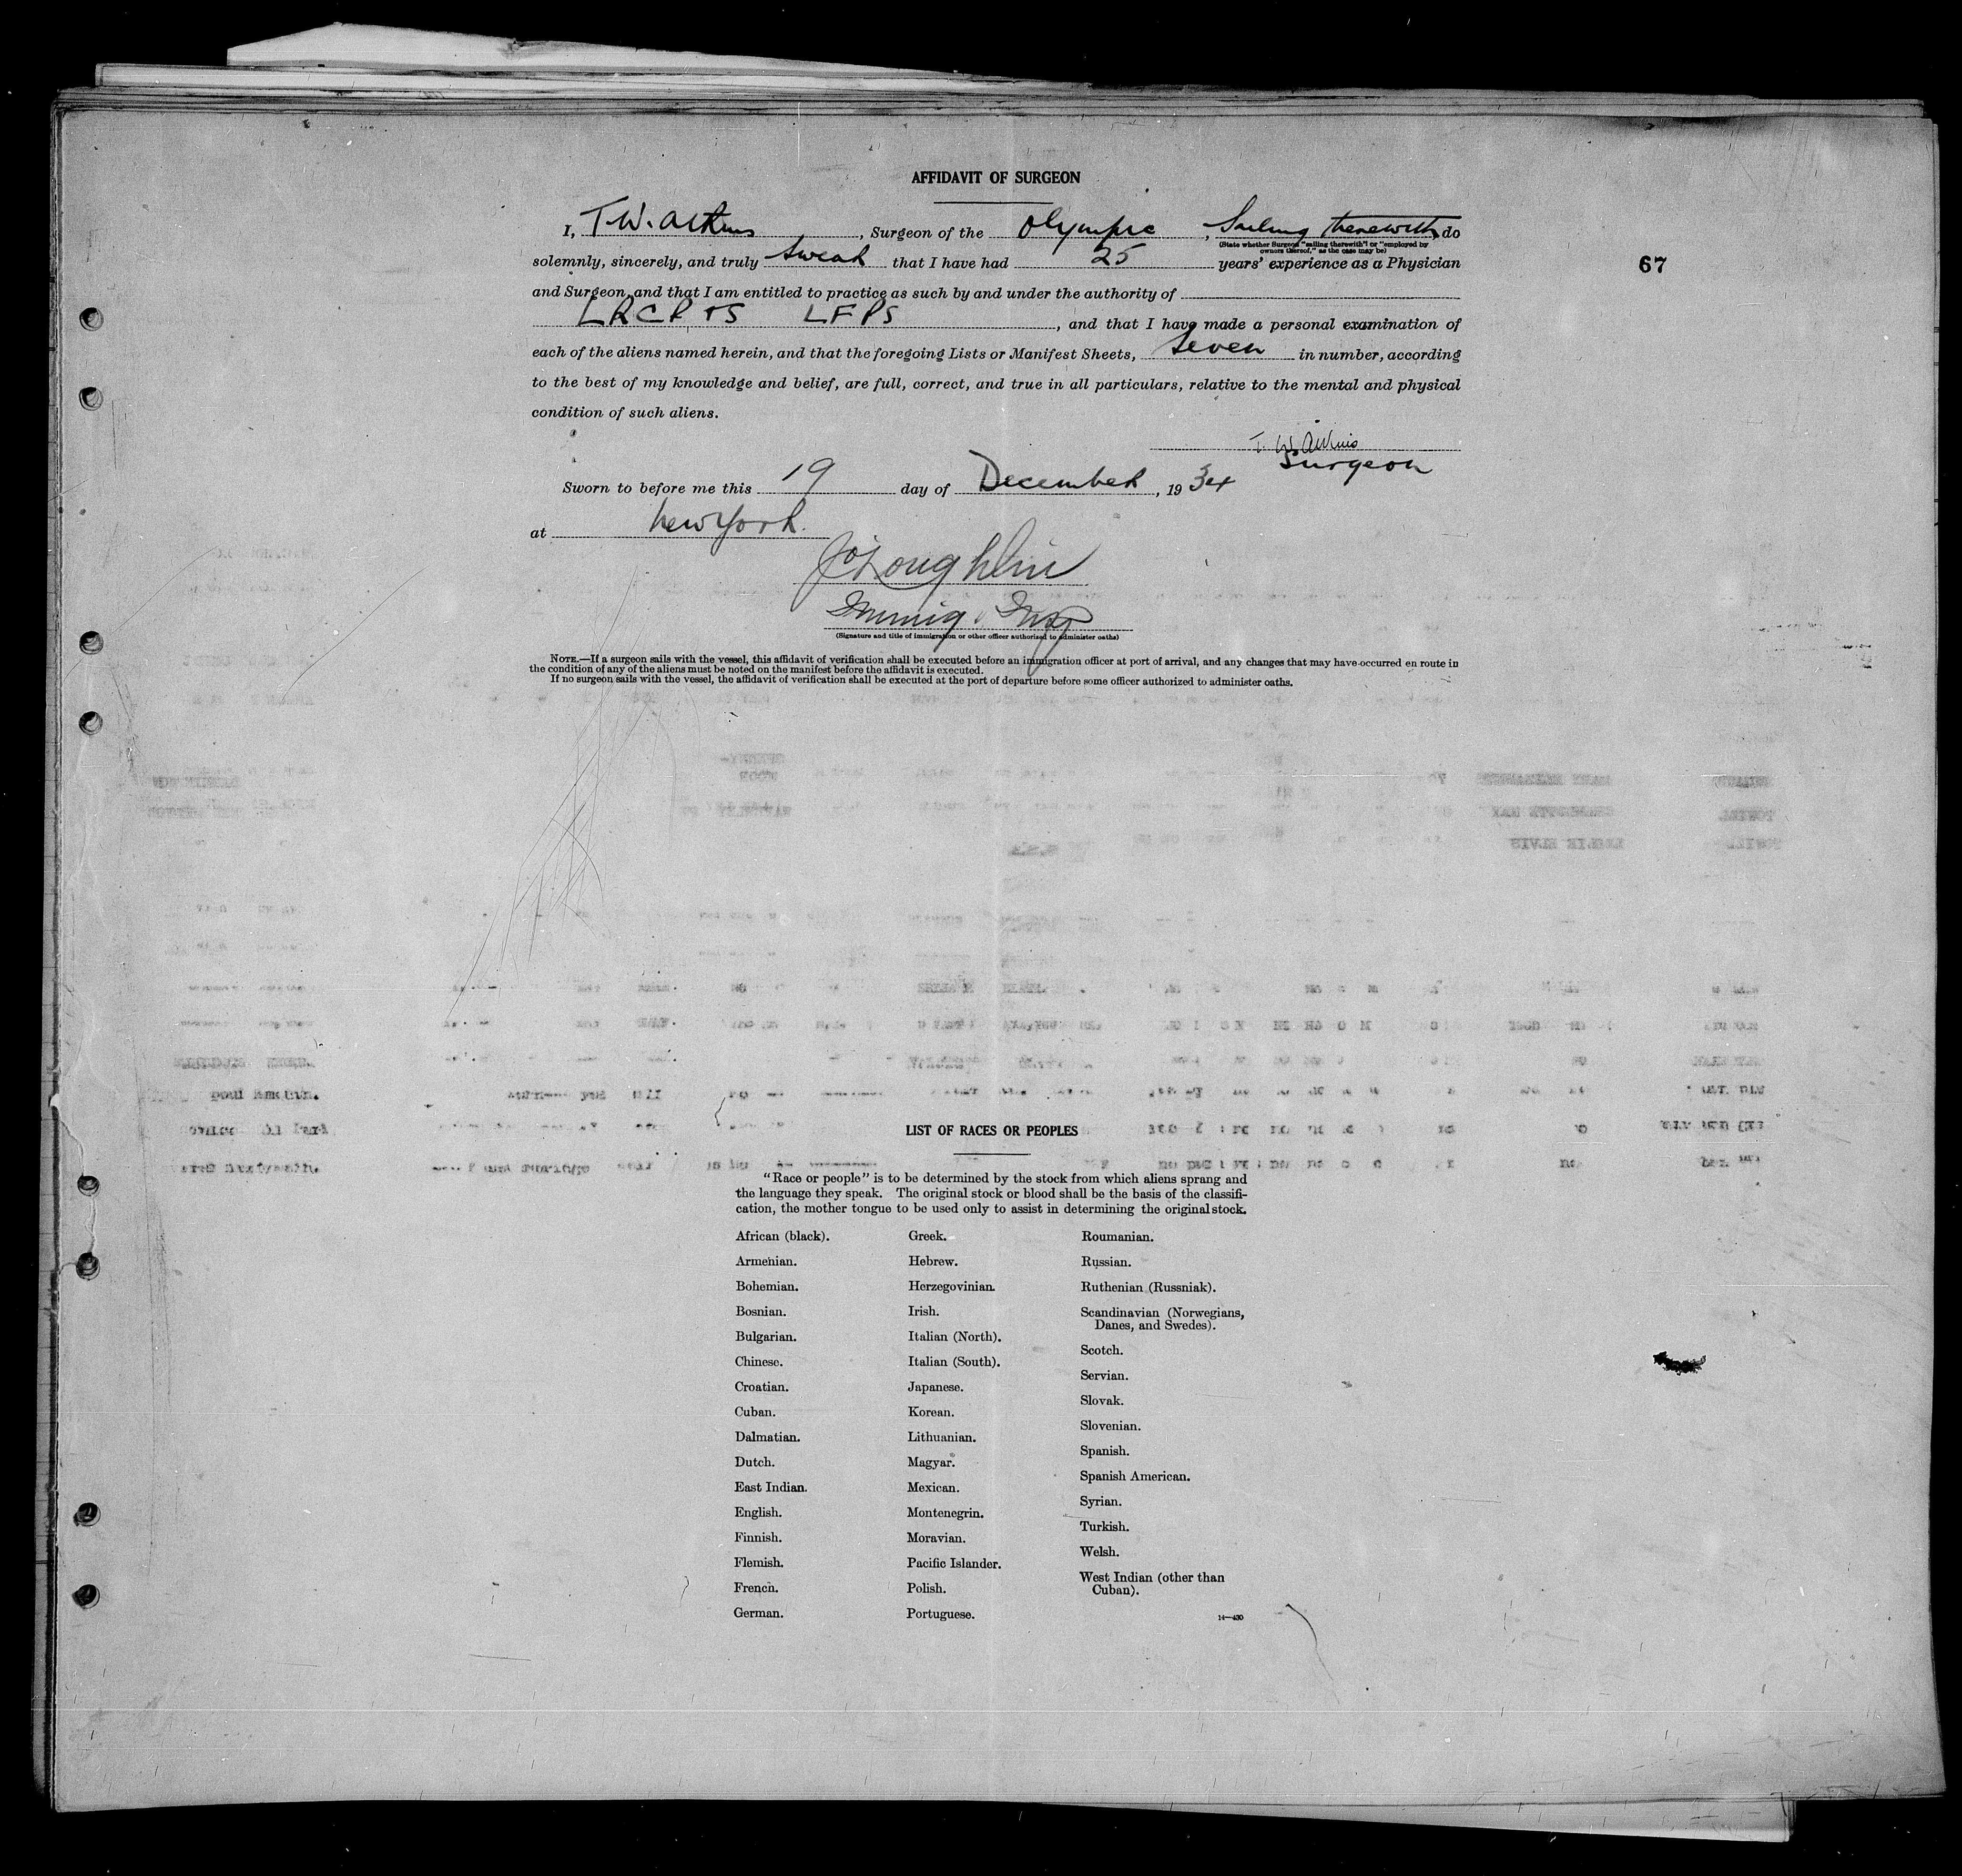 AFFIDAVIT OF SURGEON
I, T.W. , Surgeon of the Olympic , Sailing therewith, do
(State whether Surgeon "sailing therewith" or "employed by
owners thereof," as the case may be)
solemnly, sincerely, and truly swear that I have had 25 years' experience as a Physician
67
and Surgeon, and that I am entitled to practice as such by and under the authority of
LRCP & S LFPS , and that I have made a personal examination of
each of the aliens named herein, and that the foregoing Lists or Manifest Sheets, Seven in number, according
to the best of my knowledge and belief, are full, correct, and true in all particulars, relative to the mental and physical
condition of such aliens.
T. W.
Surgeon
Sworn to before me this 19 day of December, 1934
at New York.
O'Loughlin
Immig. Insp
(Signature and title of immigration or other officer authorized to administer oaths)
NOTE.—If a surgeon sails with the vessel, this affidavit of verification shall be executed before an immigration officer at port of arrival, and any changes that may have occurred en route in
the condition of any of the aliens must be noted on the manifest before the affidavit is executed.
If no surgeon sails with the vessel, the affidavit of verification shall be executed at the port of departure before some officer authorized to administer oaths.
LIST OF RACES OR PEOPLES
"Race or people" is to be determined by the stock from which aliens sprang and
the language they speak. The original stock or blood shall be the basis of the classifi-
cation, the mother tongue to be used only to assist in determining the original stock.
African (black).
Armenian.
Bohemian.
Bosnian.
Bulgarian.
Chinese.
Croatian.
Cuban.
Dalmatian.
Dutch.
East Indian.
English.
Finnish.
Flemish.
French.
German.
Greek.
Hebrew.
Herzegovinian.
Irish.
Italian (North).
Italian (South).
Japanese.
Korean.
Lithuanian.
Magyar.
Mexican.
Montenegrin.
Moravian.
Pacific Islander.
Polish.
Portuguese.
Roumanian.
Russian.
Ruthenian (Russniak).
Scandinavian (Norwegians,
Danes, and Swedes).
Scotch.
Servian.
Slovak.
Slovenian.
Spanish.
Spanish American.
Syrian.
Turkish.
Welsh.
West Indian (other than
Cuban).
14—430